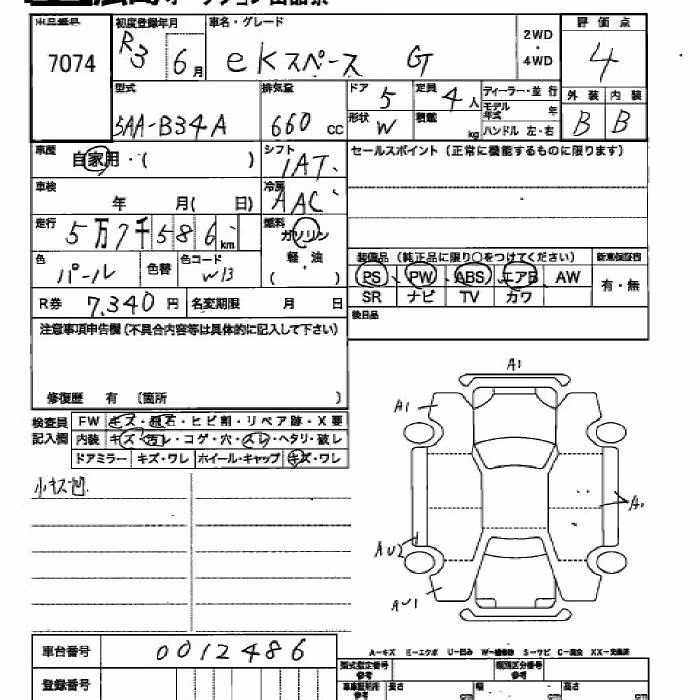 出品番号 初度登録年月 車名・グレード 2WD・4WD 評価点
7074 R3 6月 eKスペース G 4
型式 5AA-B34A 排気量 660 cc ドア 5 定員 4人 ディーラー・並行 外装 内装
形状 W 積載 kg モデル年式 年 ハンドル 左・右 B B
車歴 自家用・( ) シフト IAT セールスポイント(正常に機能するものに限ります)
車検 年 月( 日) 冷房 AAC
走行 5万7千586km 燃料 ガソリン
軽・油
( )
色 パール 色替 色コード W13
装備品(純正品に限り○をつけてください) 新車保証書
PS PW ABS エアB AW 有・無
SR ナビ TV カワ
R券 7,340円 名変期限 月 日 後日品
注意事項申告欄(不具合内容等は具体的に記入して下さい)
修復歴 有 〔箇所 〕
検査員記入欄 FW キズ・飛石・ヒビ割・リペア跡・X要
内装 キズ・汚レ・コゲ・穴・スレ・ヘタリ・破レ
ドアミラー キズ・ワレ ホイール・キャップ キズ・ワレ
小キズ凹
A1
A1
A1
AU2
AU1
車台番号 0012486
A-キズ E-エクボ U-凹み W-補修跡 S-サビ C-腐食 XX-交換済
登録番号
型式指定番号 参考 類別区分番号 参考
長さ cm 幅 cm 高さ cm